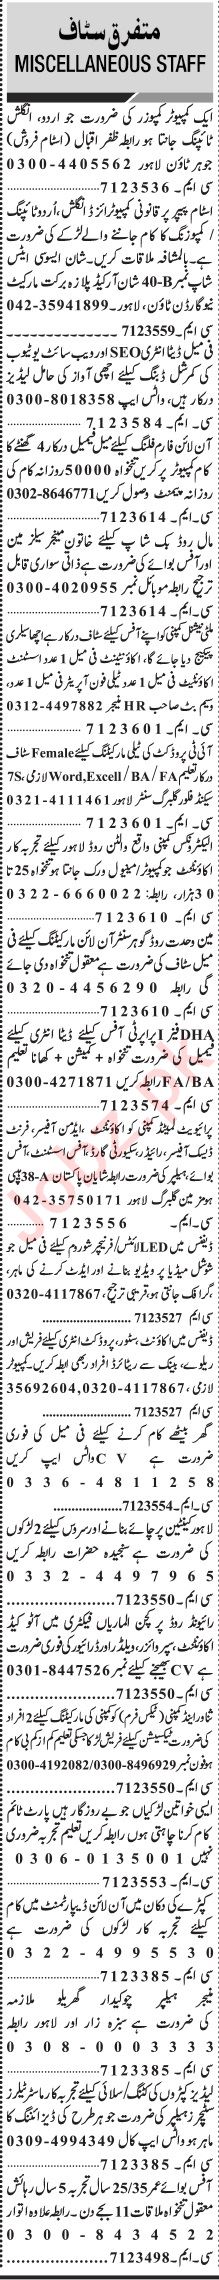 متفرق سٹاف
MISCELLANEOUS STAFF
ایک کمپیوٹر کمپوزر کی ضرورت جو اردو، انگلش
ٹائپنگ جانتا ہو رابطہ ظفر اقبال (اسٹام فروش)
جوہر ٹاؤن لاہور 0300-4405562
سی ایم۔ 7123536
اسٹام پیپر پر قانونی کمپیوٹرائزڈ انگلش، اُردو ٹائپنگ
/ کمپوزنگ کا کام جاننے والے لڑکے کی ضرورت
ہے۔ بالمشافہ ملاقات کریں۔ شان ایسوسی ایٹس
شاپ نمبر 40-B شان آرکیڈ پلازہ برکت مارکیٹ
نیو گارڈن ٹاؤن، لاہور۔ 042-35941899
سی ایم۔ 7123559
فی میل ڈیٹا انٹری SEO اور ویب سائٹ یوٹیوب
کی کمرشل ڈبنگ کیلئے اچھی آواز کی حامل لیڈیز
درکار ہیں، واٹس ایپ 0300-8018358
سی۔ ایم۔ 7123584
آن لائن فارم فلنگ کیلئے میل فیمیل درکار 4 گھنٹے کا
کام کمپیوٹر پر کریں تنخواہ 50000 روزانہ کام کی
روزانہ پیمنٹ وصول کریں 0302-8646771
سی۔ ایم۔ 7123614
مال روڈ بک شاپ کے لئے خاتون منیجر سیلز مین
اور آفس بوائے کی ضرورت ہے ذاتی سواری قابل
ترجیح رابطہ موبائل نمبر 0300-4020955
سی۔ ایم۔ 7123614
ملٹی نیشنل کمپنی کو اپنے آفس کیلئے سٹاف درکار ہے اچھا سیلری
پیکیج دیا جائے گا، اکاؤنٹینٹ فی میل 1 عدد اسسٹنٹ
اکاؤنٹینٹ فی میل 1 عدد ٹیلی فون آپریٹر فی میل 1 عدد،
وسیم بٹ صاحب HR منیجر 0312-4497882
سی ایم۔ 7123601
آئی ٹی پروڈکٹ کی ٹیلی مارکیٹنگ کیلئے Female سٹاف
درکار تعلیم Word,Excell / BA / FA لازمی۔ 7S،
سیکنڈ فلور گلبرگ سنٹر لاہور 0321-4111461
سی ایم۔ 7123601
الیکٹرونکس کمپنی واقع والٹن روڈ لاہور کیلئے تجربہ کار
اکاؤنٹنٹ جو کمپیوٹر / مینول ورک جانتا ہو تنخواہ 25 تا
30 ہزار، رابطہ: 0322-6660022
سی ایم۔ 7123610
مین وحدت روڈ گوہر سنٹر آن لائن مارکیٹنگ کیلئے فی
میل سٹاف کی ضرورت ہے معقول تنخواہ دی جائے
گی رابطہ 0320-4456290
سی ایم۔ 7123610
DHA فیز I پراپرٹی آفس کیلئے ڈیٹا انٹری کیلئے
فیمیل کی ضرورت تنخواہ + کمیشن + کھانا تعلیم
FA/BA رابطہ کریں 0300-4271871
سی ایم۔ 7123574
پرائیویٹ لمیٹڈ کمپنی کو اکاؤنٹنٹ، ایڈمن آفیسر، فرنٹ
ڈیسک آفیسر، رائڈر، سکیورٹی گارڈ، آفس اسسٹنٹ، آفس
بوائے، ہیلپر کی ضرورت رابطہ شایان پاکستان 38-A پیپی
ہومز مین گلبرگ لاہور 042-35750171
سی۔ ایم۔ 7123556
ڈیفنس میں LED لائٹس / فرنیچر شوروم کیلئے فی میل جو
سوشل میڈیا پر ویڈیو بنانے اور ایڈٹ کرنے کی ماہر،
گرافک جانتی ہو، قریبی ترجیح، 0320-4117867
سی ایم 7123527
ڈیفنس میں اکاؤنٹ، سٹور، پروڈکٹ انٹری کیلئے فریش اور
ریلوے، بینک سے ریٹائرڈ افراد بھی رابطہ کریں۔ کمپیوٹر
لازمی، 35692604,0320-4117867
سی ایم 7123527
گھر بیٹھے کام کرنے کیلئے فی میل کی فوری
ضرورت ہے CV واٹس ایپ کریں
0336-4811258
سی۔ ایم۔ 7123554
لاہور کینٹین پر چائے بنانے اور سروس کیلئے 2 لڑکوں
کی ضرورت ہے سنجیدہ حضرات رابطہ کریں
0332-4497965
سی۔ ایم۔ 7123550
رائیونڈ روڈ پر کچن الماریاں فیکٹری میں آٹو کیڈ
اکاؤنٹنٹ، سپروائزر، ویلڈر اور ڈرائیور کی فوری ضرورت
ہے CV بھیجنے کیلئے نمبر 0301-8447526
سی۔ ایم۔ 7123550
ثناور اینڈ کمپنی (ٹیکس فرم) کو کمپنی کی مارکیٹنگ کیلئے 2 افراد
کی ضرورت ٹیکسیشن کیلئے فریش لڑکا جسکی تعلیم کم از کم بی کام
ہو فون نمبر 0300-4192082/0300-8496929
سی۔ ایم۔ 7123550
ایسی خواتین لڑکیاں جو بے روزگار ہیں پارٹ ٹائم
کام کرنا چاہتی ہوں رابطہ کریں تعلیم تجربہ ضروری
نہیں 0306-0135001
سی۔ ایم۔ 7123553
کپڑے کی دکان میں آن لائن ڈیپارٹمنٹ میں کام
کیلئے تجربہ کار لڑکوں کی ضرورت ہے
0322-4995530
سی ایم۔ 7123385
منیجر ہیلپر چوکیدار گھریلو ملازمہ
کی ضرورت ہے سبزہ زار اور لاہور رابطہ
0308-0003333
سی ایم۔ 7123385
لیڈیز کپڑوں کی کٹنگ / سلائی کیلئے تجربہ کار ماسٹر ٹیلرز
سٹچرز ہیلپر کی ضرورت جو ہر طرح کی ڈیزائننگ کا
ماہر ہو واٹس ایپ کال 0309-4994349
سی ایم۔ 7123385
آفس بوائے عمر 25/35 سال تجربہ 5 سال رہائش
معقول تنخواہ ملاقات 11 بجے دن۔ رابطہ علاوہ اتوار
0300-8434522
سی ایم۔ 7123498